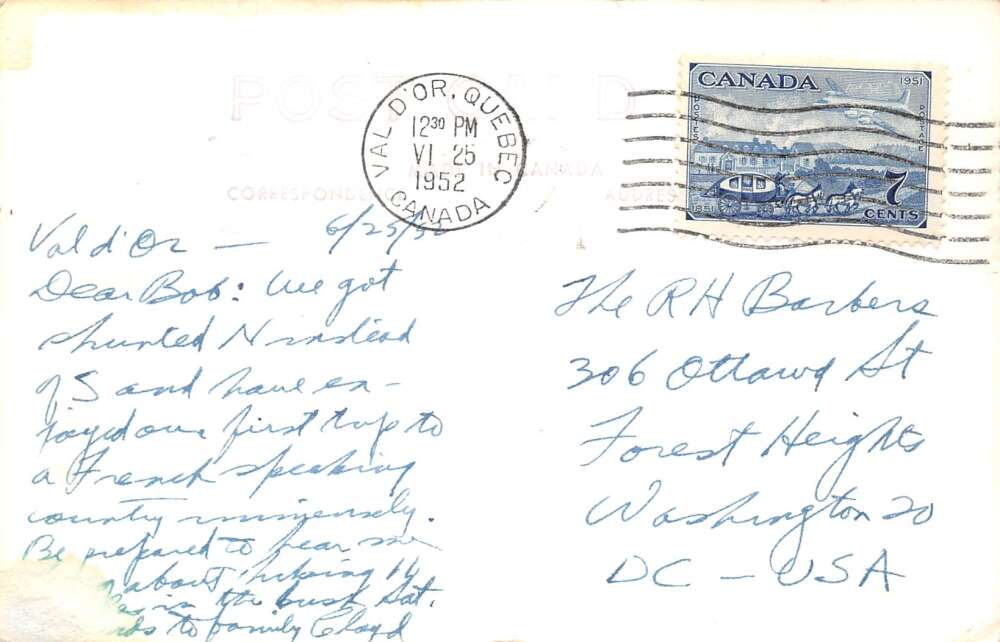 POST CARD
VAL D'OR, QUEBEC
12³⁰ PM
VI 25
1952
CANADA
CANADA
1951
POSTES
POSTAGE
1851
7
CENTS
MADE IN CANADA
CORRESPONDENCE
ADDRESS
Val d'Or — 6/25/52
Dear Bob: We got
shunted N instead
of S and have en-
joyed our first trip to
a French speaking
country immensely.
Be prepared to hear me
about hiking 14
in the bush Sat.
to family Cloyd
The RH Barbers
306 Ottawa St
Forest Heights
Washington 20
DC - USA